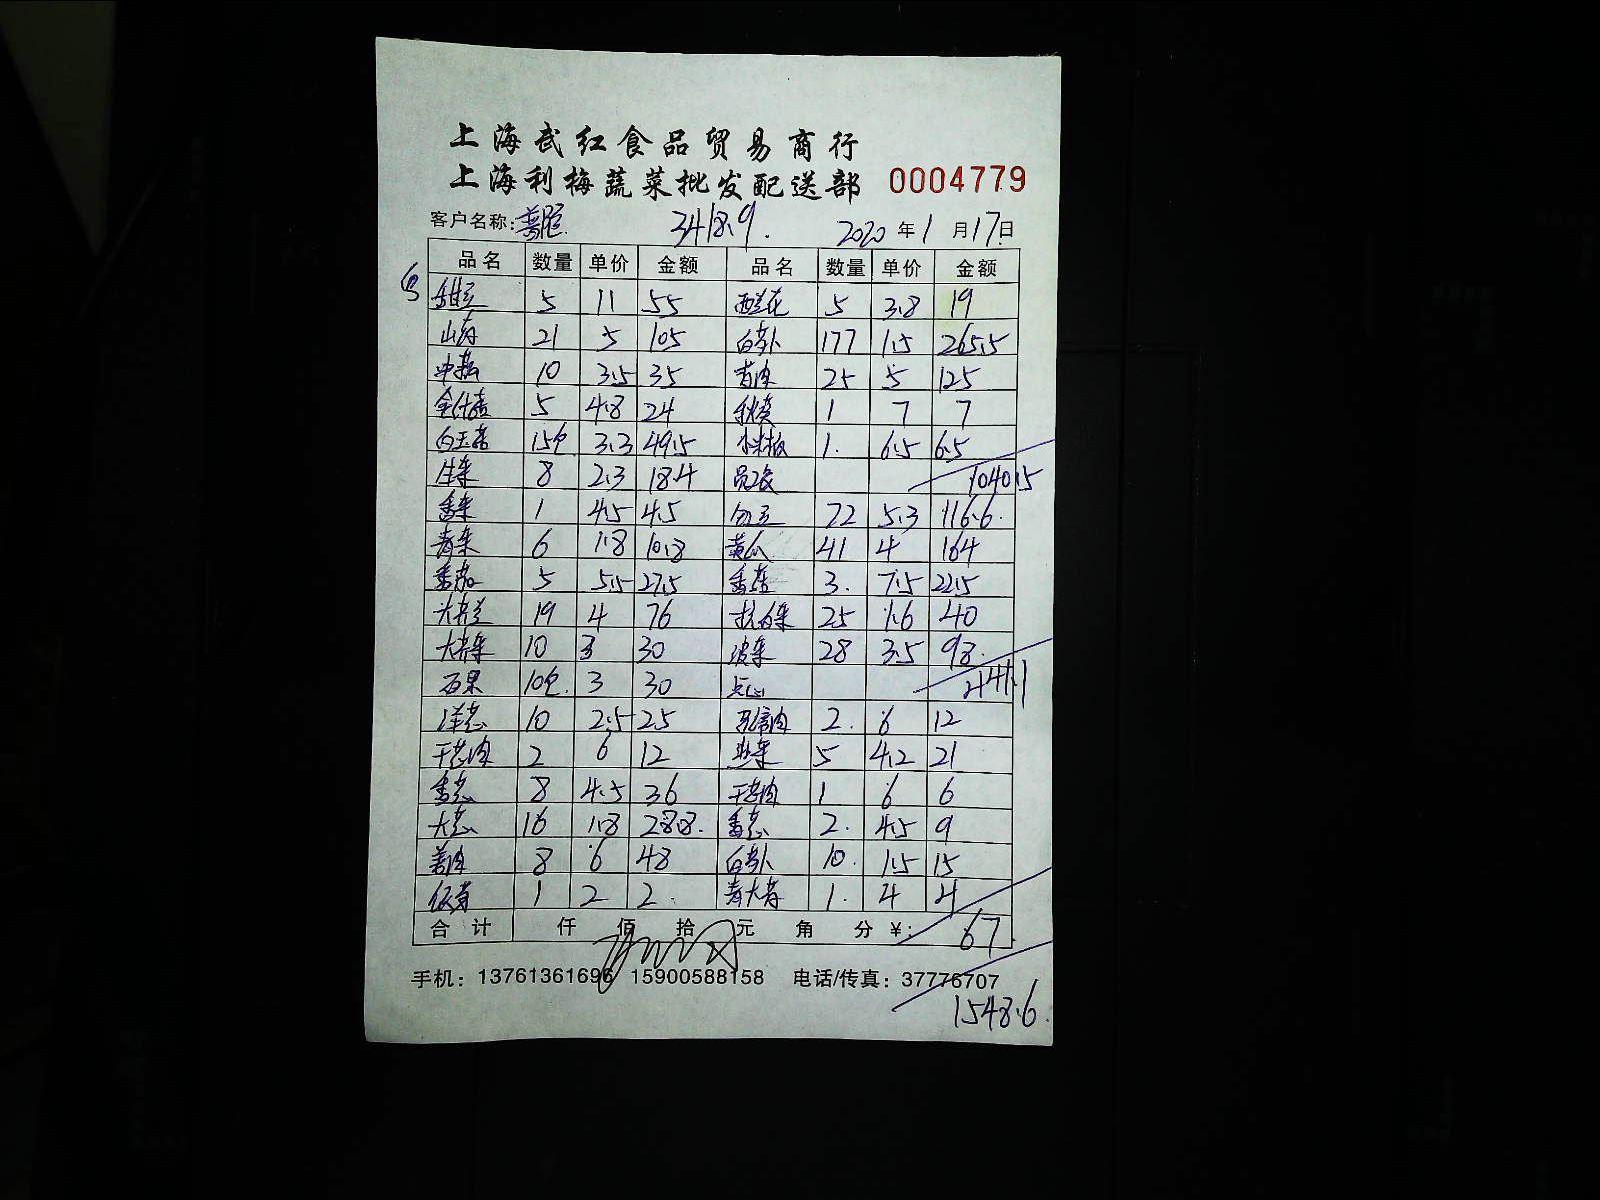 上海武红食品贸易商行
上海利梅蔬菜批发配送部 0004779
客户名称: 3418.9. 2020 年 1 月 17 日
品名 数量 单价 金额 品名 数量 单价 金额
甜豆 5 11 55 西兰花 5 3.8 19
山药 21 5 105 白萝卜 177 1.5 265.5
10 3.5 35 25 5 125
5 4.8 24 秋葵 1 7 7
白玉菇 15包 3.3 49.5 小米椒 1. 6.5 6.5
生菜 8 2.3 18.4 1040.5
香菜 1 4.5 4.5 22 5.3 116.6.
青菜 6 1.8 10.8 黄瓜 41 4 164
番茄 5 5.5 27.5 香菇 3. 7.5 22.5
大 19 4 76 杭白菜 25 1.6 40
10 3 30 菠菜 28 3.5 98.
10包. 3 30 点心 441.1
洋葱 10 2.5 25 2. 6 12
干葱肉 2 6 12 韭菜 5 4.2 21
香葱 8 4.5 36 干葱肉 1 6 6
大葱 16 1.8 28.8. 香葱 2. 4.5 9
姜肉 8 6 48 白萝卜 10. 1.5 15
1 2 2. 青大蒜 1. 4 4
合计 仟 佰 拾 元 角 分 ¥: 67
手机: 13761361696 15900588158 电话/传真: 37776707
1548.6.